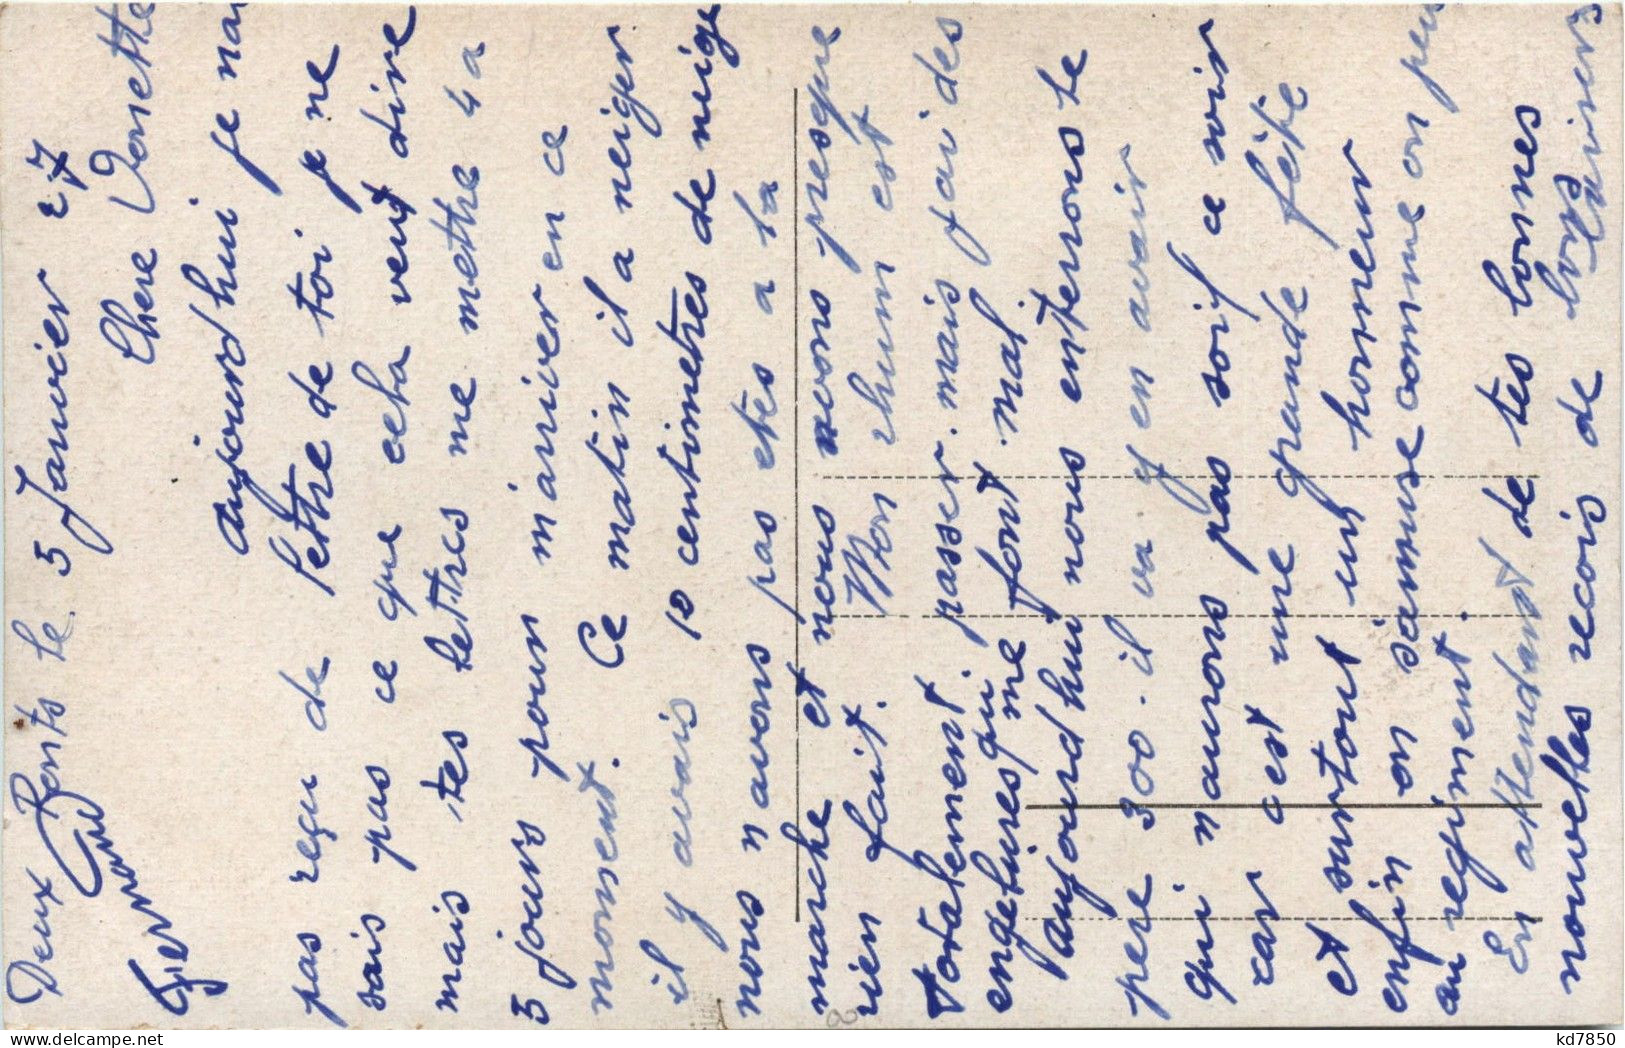 Deux Ponts le 5 Janvier 27
Chere Vonette
aujourd hui je nai
pas reçu de lettre de toi je ne
sais pas ce que cela veut dire
mais tes lettres ne mettre 4 a
5 jours pour m'arriver en ce
moment. Ce matin il a neiger
il y avais 10 centimetres de neige
nous n avons pas etes a la
marche et nous avons presque
rien fait. Mon rhum est
totalement passer. mais j'ai des
engelures qui me font mal.
aujourd hui nous enterrons le
pere 300. il va y en avoir
qui n aurons pas soif ce soir
car c est une grande fête
et surtout un honneur
enfin on s'amuse comme on peu
au regiment.
En attendant de tes bonnes
nouvelles recois de bons
baisers
Germain
kd7850